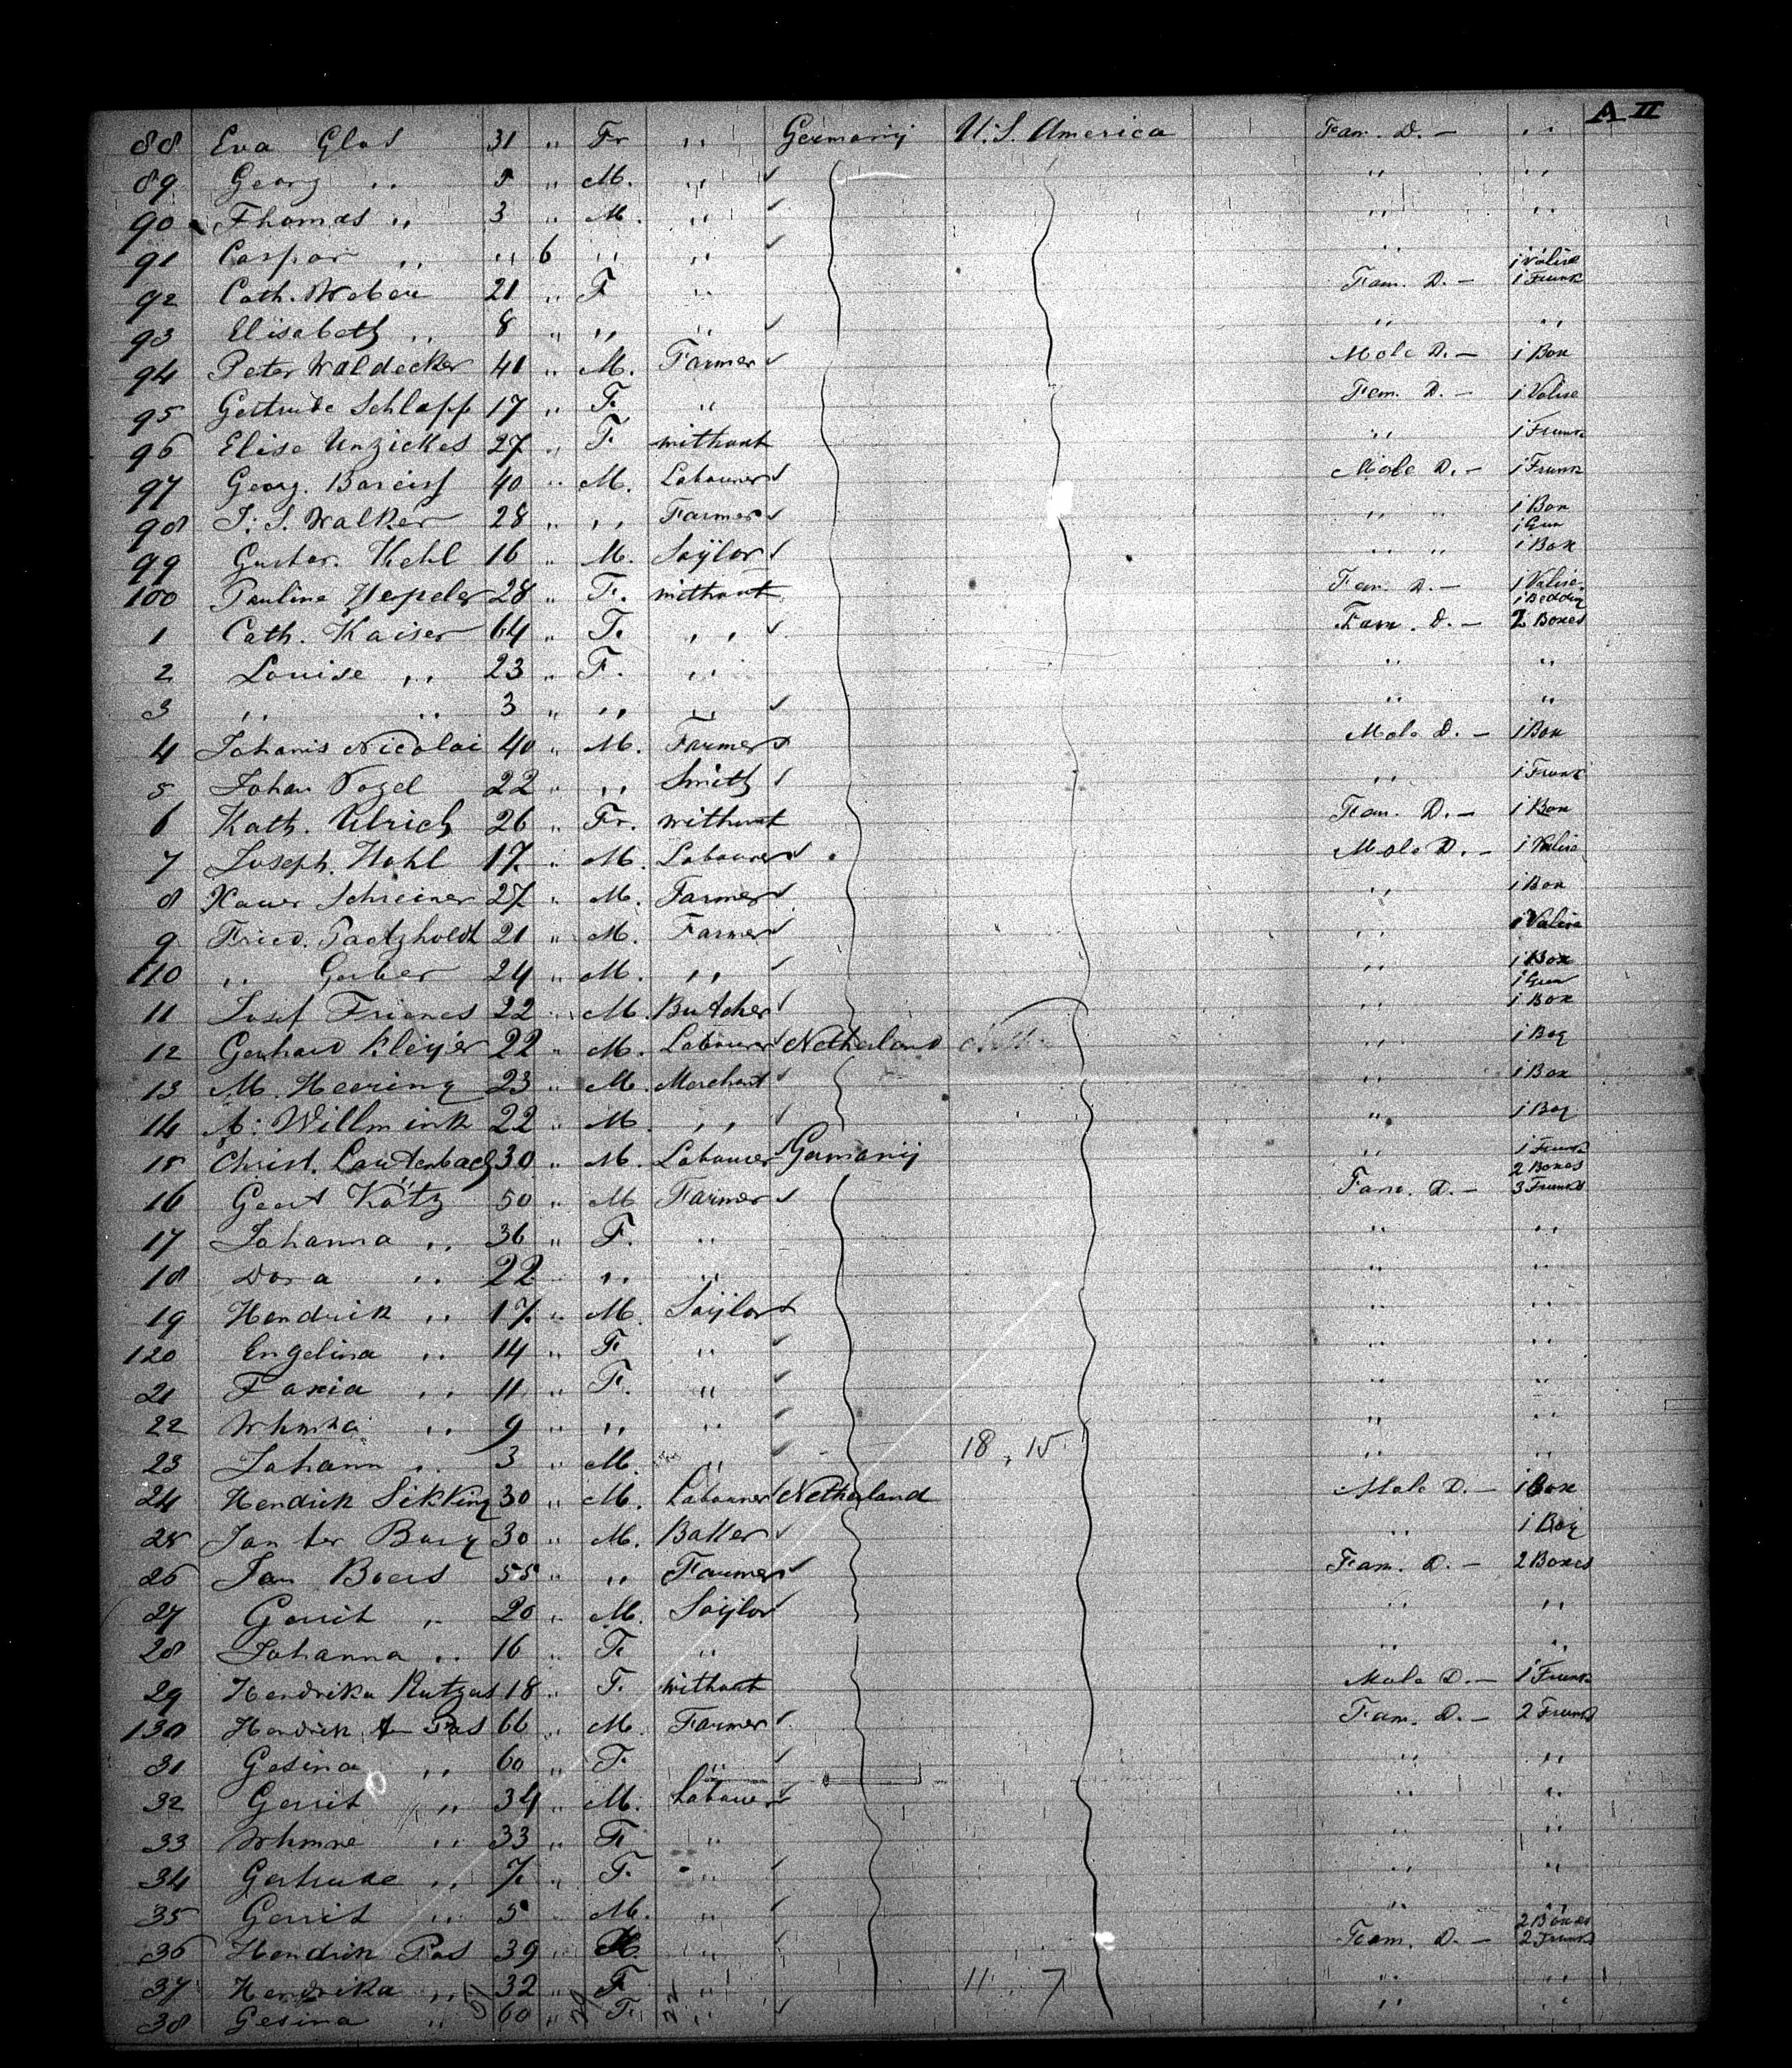 A II
88 Eva Glas 31 " Fr " Germany U.S. America Fam. D. — "
89 Georg " 5 " M. " " "
90 Thomas " 3 " M. " " "
91 Caspar " " 6 " " " 1 Valise
92 Cath. Weber 21 " F " Fam. D. — 1 Trunk
93 Elisabeth " 8 " " " " "
94 Peter Waldecker 41 " M. Farmer Male D. — 1 Box
95 Gertrude Schlapp 17 " F. " Fem. D. — 1 Valise
96 Elise Unzickes 27 " F. without " 1 Trunk
97 Georg. Bareiss 40 " M. Labourer Male D. — 1 Trunk
98 J. S. Walker 28 " " Farmer " " 1 Box 1 Gun
99 Gustav. Kehl 16 " M. Saÿlor " " 1 Box
100 Pauline Hepeler 28 " F. without Fem. D. — 1 Valise 1 Bedding
1 Cath. Kaiser 64 " F. " Fam. D. — 2 Boxes
2 Louise " 23 " F. " " "
3 " " 3 " " " " "
4 Johanis Nicolai 40 " M. Farmer Male D. — 1 Box
5 Johan Vogel 22 " " Smith " 1 Trunk
6 Kath. Ulrich 26 " Fr. without Fem. D. — 1 Box
7 Joseph. Hohl 17 " M. Labourer Male D. — 1 Valise
8 Xaver Schreiner 27 " M. Farmer " 1 Box
9 Fried. Paetzholdt 21 " M. Farmer " 1 Valise
110 " Gerber 24 " M. " " 1 Box 1 Gun
11 Josef Frienes 22 " M. Butcher " 1 Box
12 Gerhard Kleijer 22 " M. Labourer Netherland " 1 Bag
13 M. Heering 23 " M. Merchant " 1 Box
14 A. Willmink 22 " M. " " 1 Bag
15 Christ. Lautenbach 30 " M. Labourer Germany " 1 Trunk
16 Geert Kötz 50 " M Farmer Fam. D. — 2 Boxes 3 Trunks
17 Johanna " 36 " F. " " "
18 Dora " 22 " " " " "
19 Hendrik " 17 " M. Saÿlor " "
120 Engelina " 14 " F. " " "
21 " 11 " F. " " "
22 " 9 " " " " "
23 Johann " 3 " M. " 18, 15 " "
24 Hendrik Sikking 30 " M. Labourer Netherland Male D. — 1 Box
25 Jan ter Burg 30 " M. Baker " 1 Bag
26 Jan Boers 55 " " Farmer Fam. D. — 2 Boxes
27 Gerrit " 20 " M. Saÿlor " "
28 Johanna " 16 " F. " " "
29 Hendrika Rutgas 18 " F. without Male D. — 1 Trunk
130 Hendrik Pas 66 " M. Farmer Fam. D. — 2 Trunks
31 Gesina " 60 " F. " " "
32 Gerrit " 34 " M. Labourer " "
33 " 33 " F. " " "
34 Gertrude " 7 " F. " " "
35 Gerrit " 5 M. " " "
36 Hendrik Pas 39 " " Fam. D. — 2 Boxes 2 Trunks
37 Hendrika " 32 " F. " 11 7 " "
38 Gesina " 60 " F. " " "